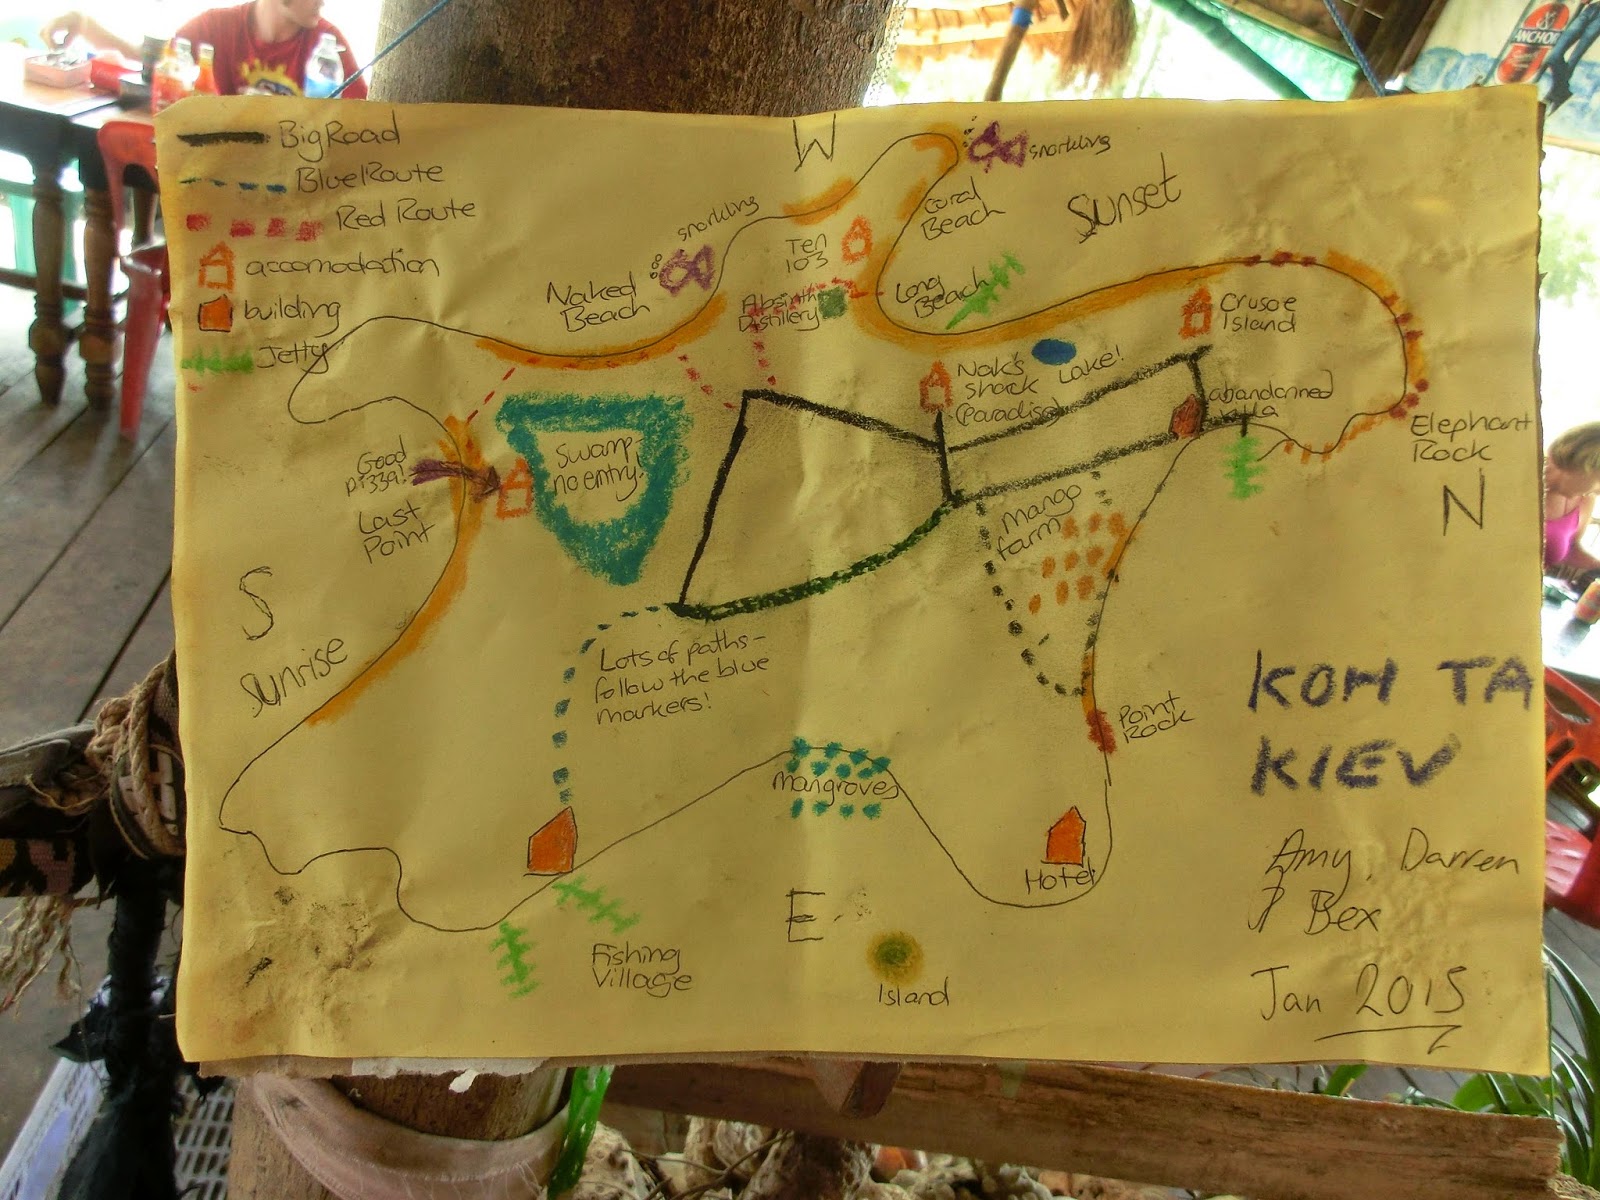 Big Road
Blue Route
Red Route
accomodation
building
Jetty
W
snorkling
Coral
Beach
Sunset
snorkling
Naked
Beach
Ten
103
Absinth
Distillery
Long
Beach
Crusoe
Island
Nak's
shack
(Paradise)
Lake!
abandonned
villa
Elephant
Rock
N
Good
pizza!
Last
Point
Swamp-
no entry!
Mango
farm
S
Sunrise
Lots of paths-
follow the blue
markers!
Point
Rock
KOH TA
KIEV
mangroves
Hotel
Amy, Darren
& Bex
E
Fishing
Village
Island
Jan 2015
ANCHOR